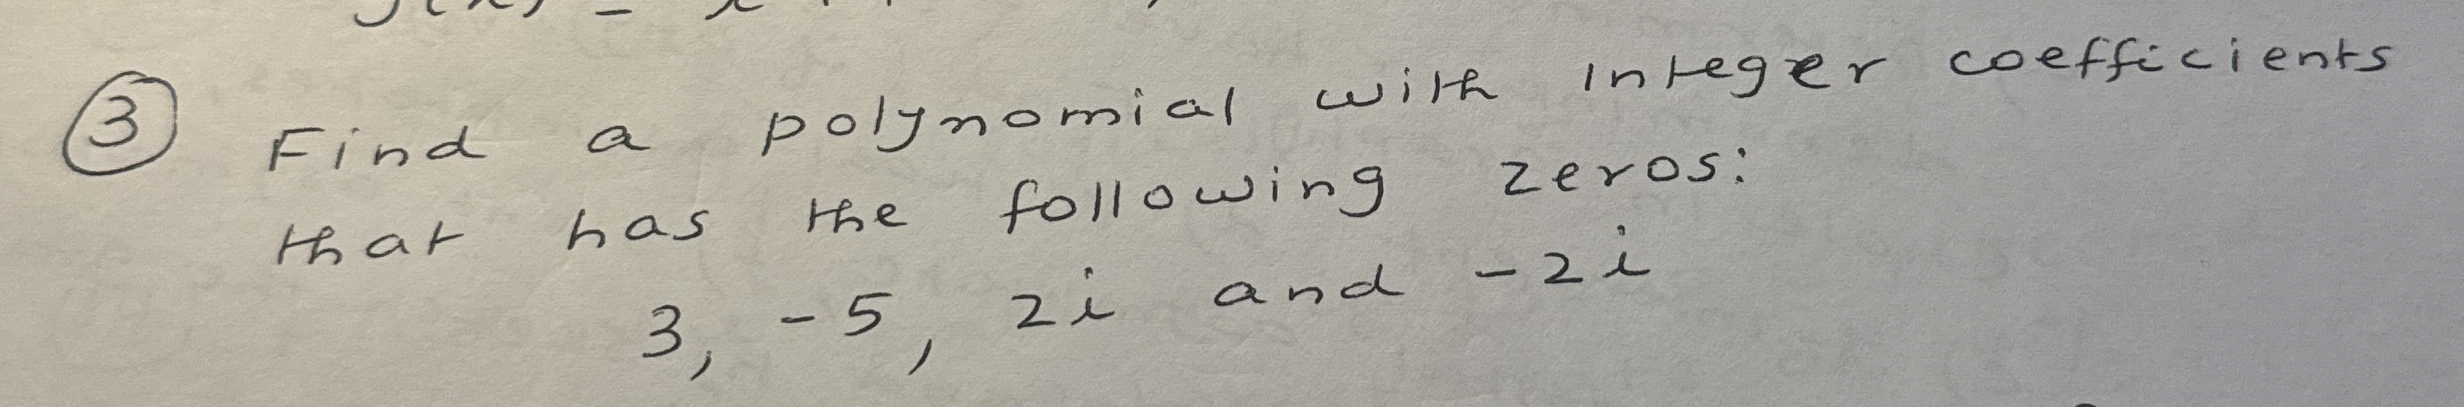 ③ Find a polynomial with integer coefficients
that has the following zeros:
3, -5, 2i and -2i